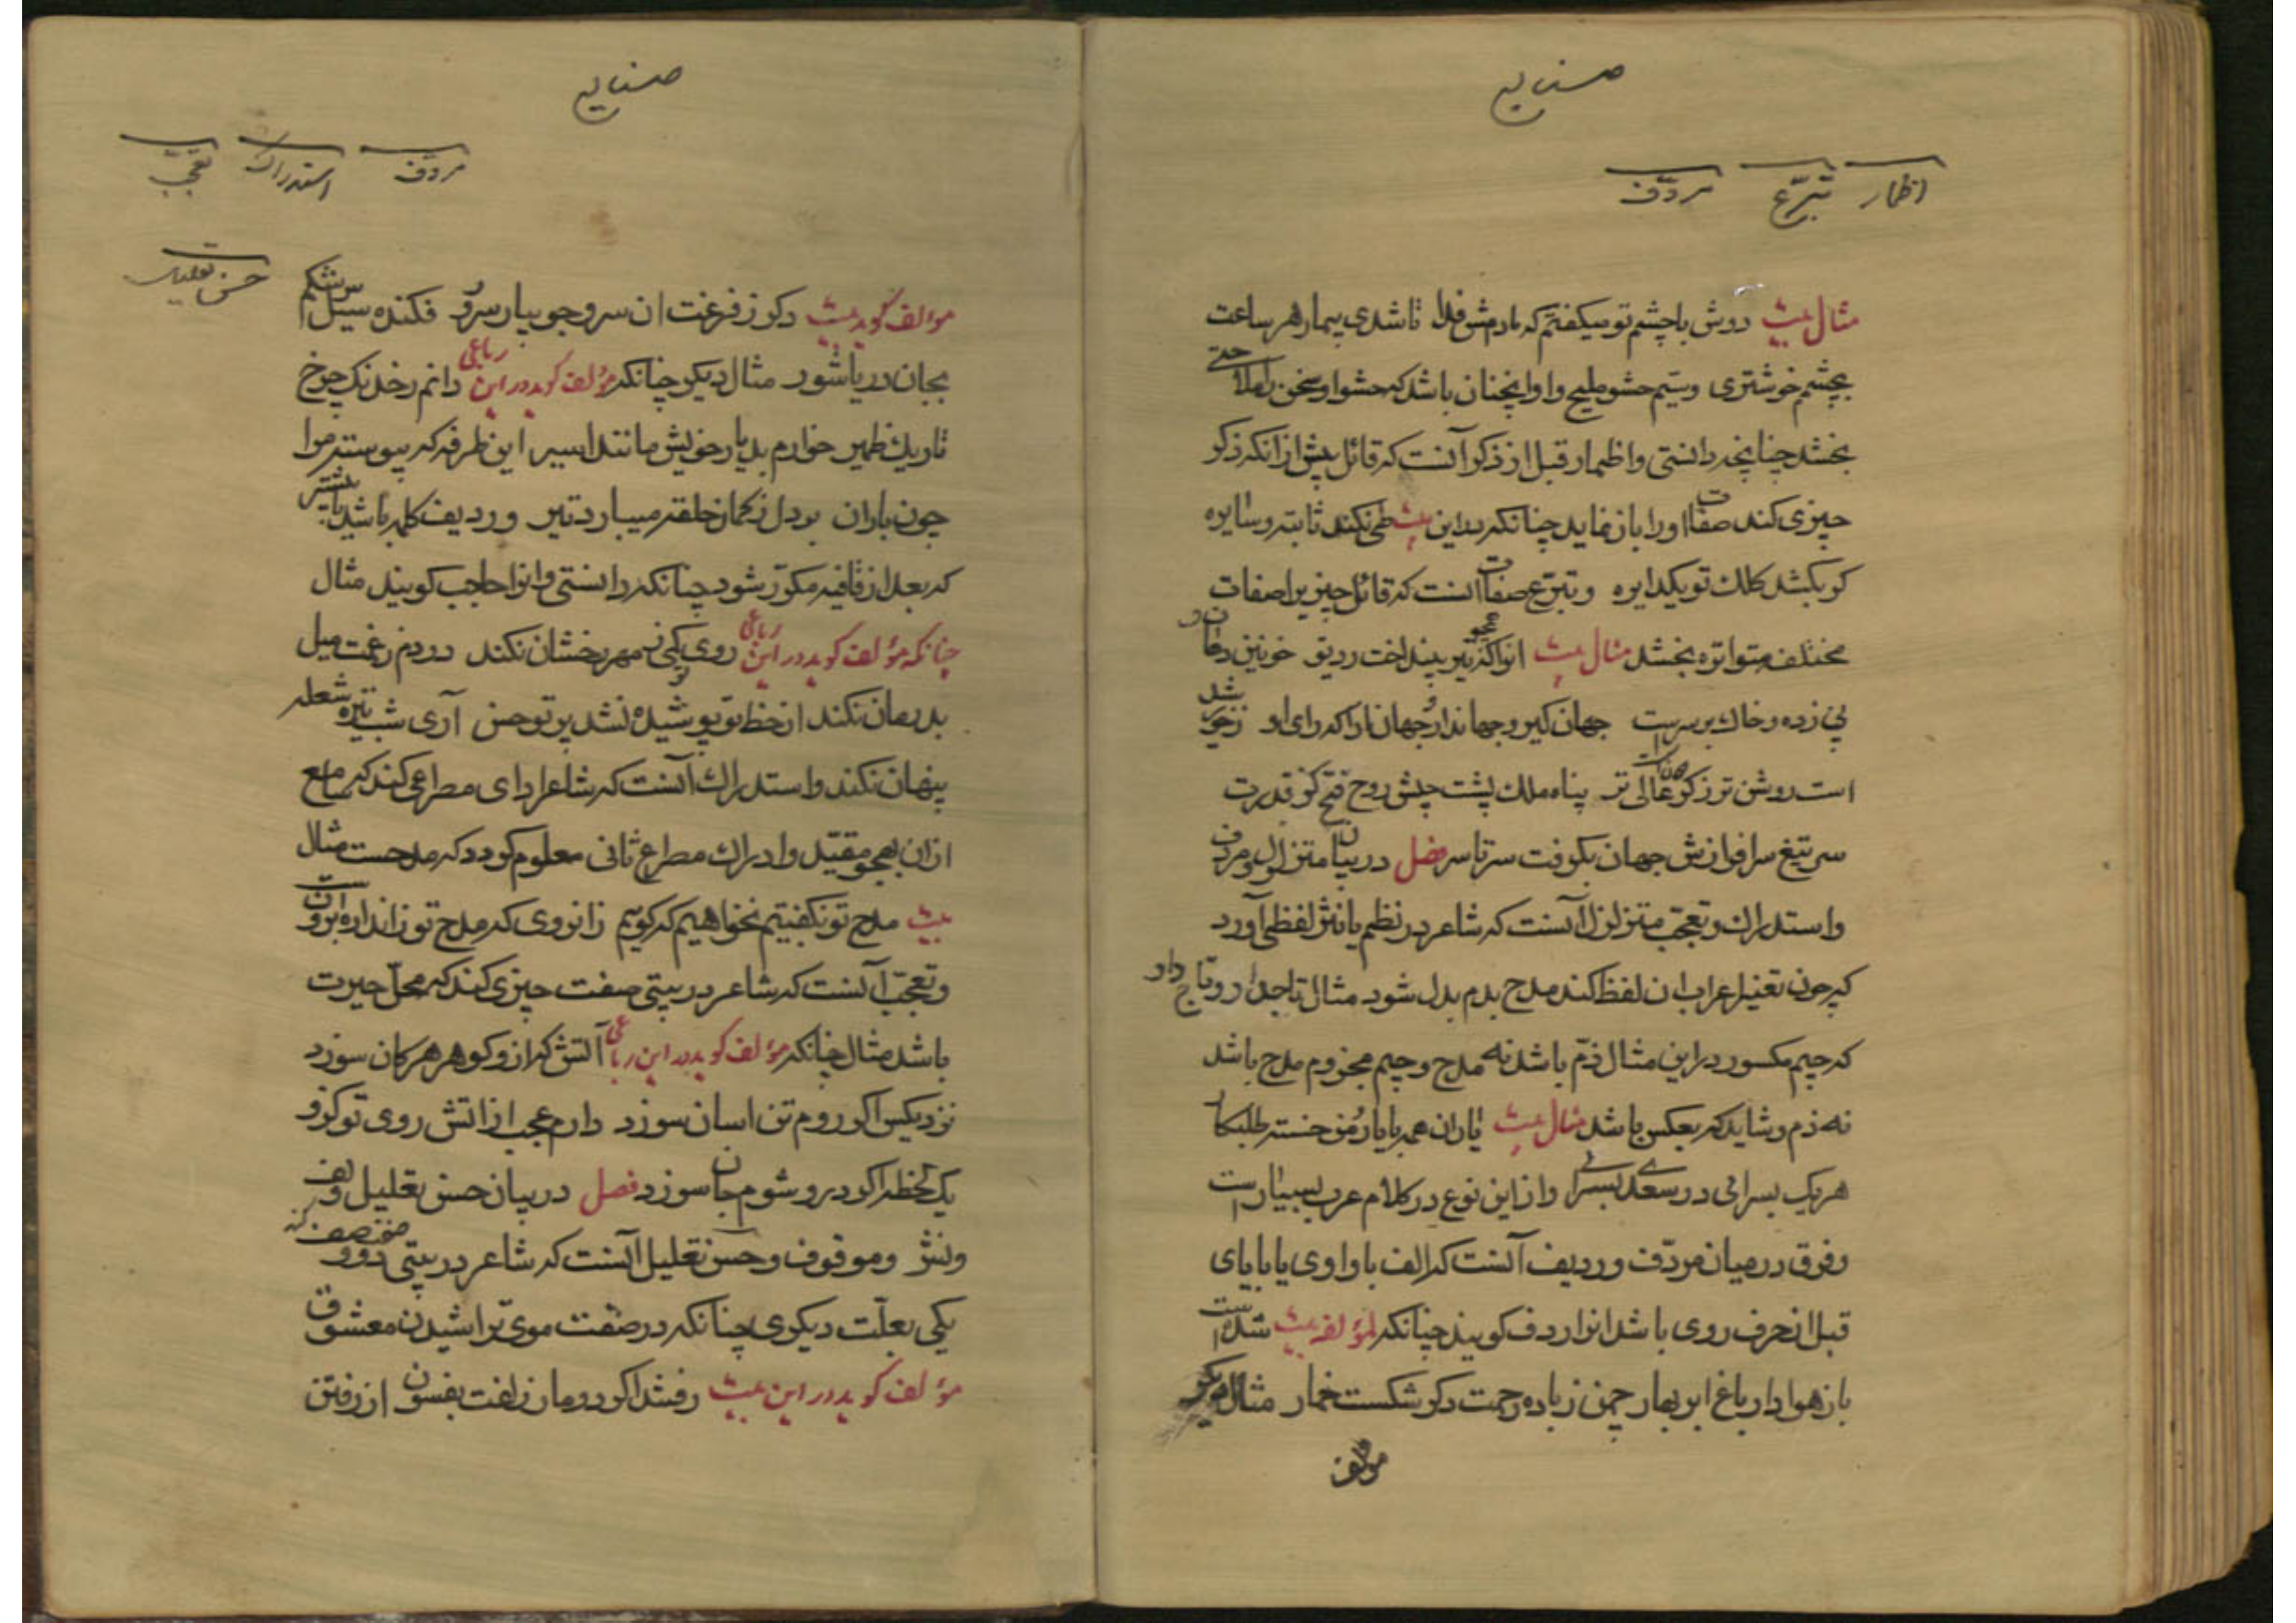 صنایع
اظمار تبرّع مردّف
مثال بیت دوش با چشم تو میگفتم که بادم پیش فدا تا شدی بیمار هر ساعت
بچشم خوشتری وسیّم حشو ملیح و او انچنان باشد که حشو او سخن را ملاحتی
بخشد چنانچه دانستی واظمار قبل از ذکر آنست که قائل پیش از انکه ذکر
چیزی کند صفات او را باز نماید چنانکه در این بیت طی نکند ثابته وسایره
کو بکشد کلک تو یکدایره وتبرّع صفات انست که قائل چیزیرا صفات
مختلفه متواتره بخشد مثال بیت
پی زده وخاک بر سر است جهان کیر وجهاندار وجهان ارا که رای او زخورشید
است روشن تر زکوهان عالی تر پناه ملک پشت جیش روح فتح کز قدرت
سر تیغ سرافرازش جهان بکرفت سرتاسر فصل در بیان متزلزل ومردّف
واستدراک وتعجّب متزلزل آنست که شاعر در نظم یا نثر لفظی آورد
که چون تغییر اعراب ان لفظ کند مدح بذم بدل شود مثال تاجدار وتاج دار
که جیم مکسور در این مثال ذمّ باشد نه مدح وجیم مجزوم مدح باشد
نه ذم وشاید که بعکس باشد مثال بیت یاران همه با یار ومن خسته طلبکار
هر یک بسرائی در سعدی بسرائی وازاین نوع در کلام عرب بسیار است
وفرق در میان مردّف وردیف آنست که الف با واوی یا با یای
قبل از حرف روی باشد انرا ردف کویند چنانکه لمؤلفه بیت شده است
باز هوادار باغ ابر بهار چمن زباده رحمت دکر شکست خمار مثال دیکر
مؤلف
صنایع
مردّف استدراک تعجّب
حسن تعلیل
مؤلف کوید بیت دکر ز فرغت ان سرو جویبار سرو فکنده سیل سرشکم
بجان دریا شور مثال دیکر چنانکه مؤلف کوید در این رباعی دانم زخدنک چرخ
تاریک ظهیر خوارم بدیار خویش مانند اسیر این طرفه که پیوسته مرا
چون باران بر دل زکمان حلقه میبارد تیر وردیف کلمه باشد یا بیشتر
که بعد از قافیه مکرّر شود چنانکه دانستی وانرا حاجب کویند مثال
چنانکه مؤلف کوید در این رباعی روی نکنی مهر رخشان نکند دردم زغمت میل
بدرمان نکند از خط تو پوشیده نشد پرتو حسن آری شب تیره شعله
پنهان نکند واستدراک آنست که شاعر ادای مصراعی کند که سامع
از ان بهجو مقیّد وادراک مصراع ثانی معلوم کردد که مدحست مثال
بیت مدح تو نکفتیم نخواهیم که کویم زانروی که مدح تو زاندازه برونست
وتعجّب آنست که شاعر در بیتی صفت چیزی کند که محلّ حیرت
باشد مثال چنانکه مؤلف کوید در این رباعی آتش که از و کوهر هر کان سوزد
نزدیکیس اکر روم تن اسان سوزد دارم عجب از اتش روی تو کزو
یک لحظه اکر دور شوم جان سوزد فصل در بیان حسن تعلیل ولف
ونشر وموقوف وحسن تعلیل آنست که شاعر در بیتی دو وصف کند
یکی بعلّت دیکری چنانکه در صفت موی تراشیدن معشوق
مؤلف کوید در این بیت رفشد اکر دو مار زلفت بفسون از رفتن